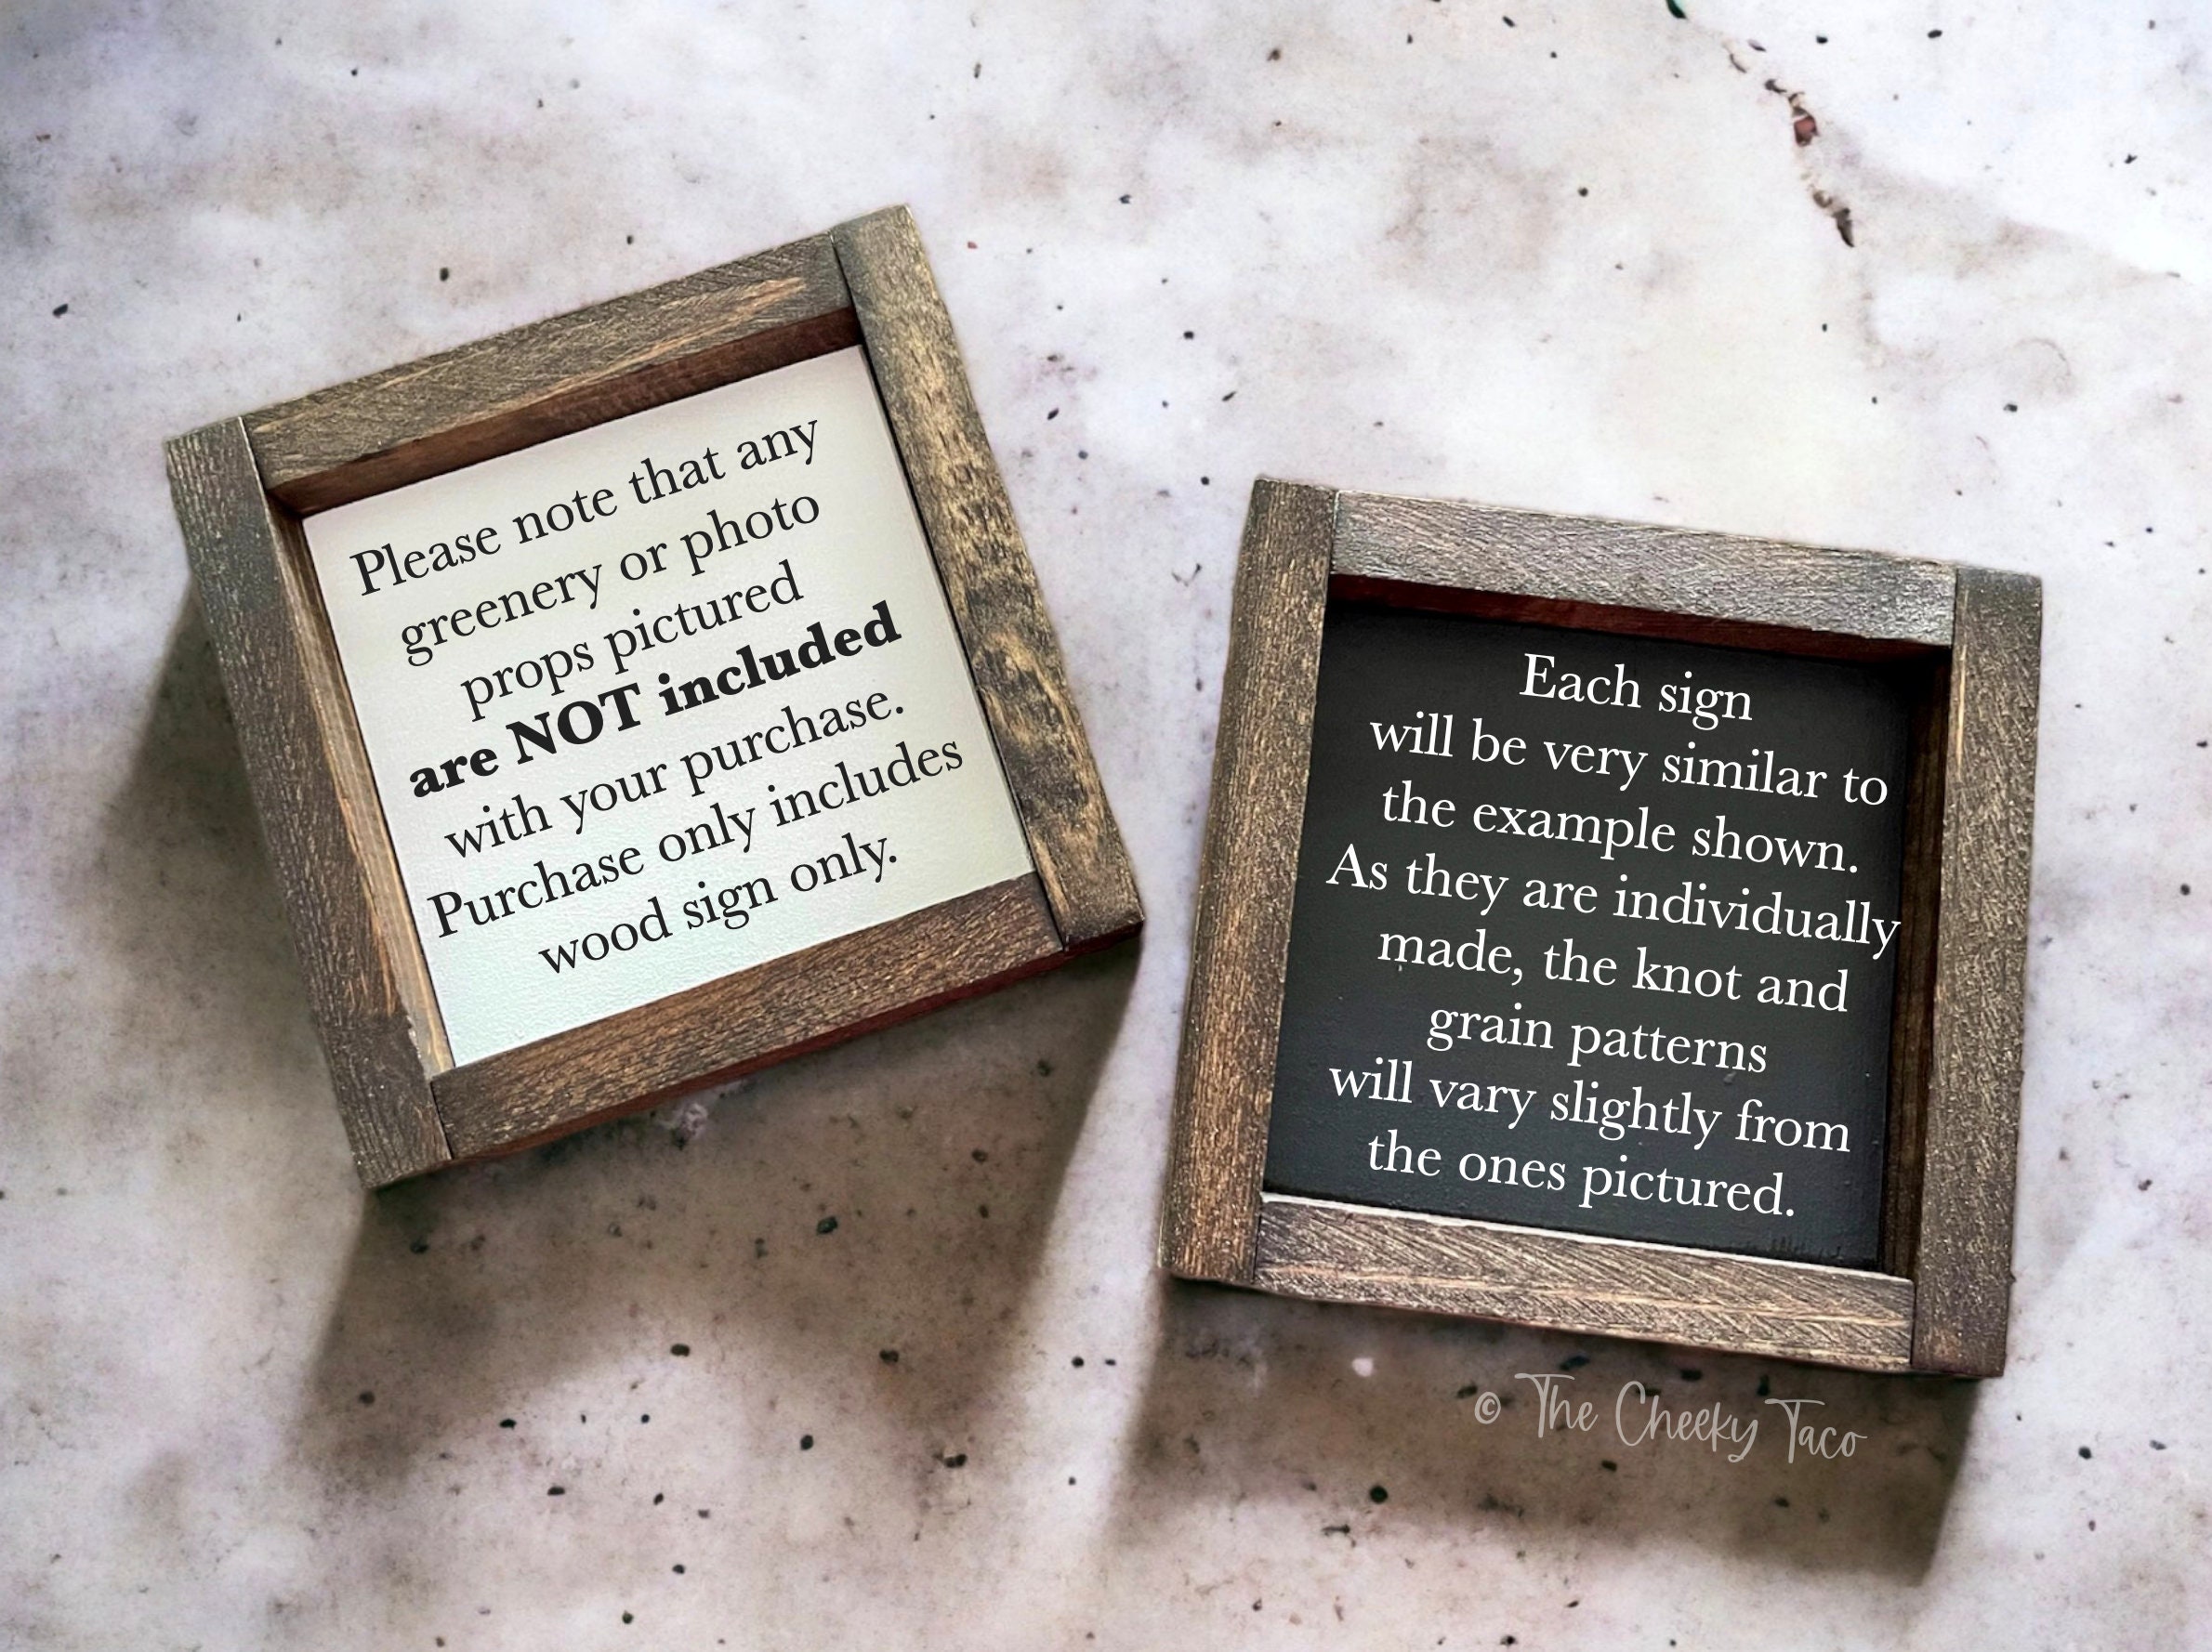 Please note that any
greenery or photo
props pictured
are NOT included
with your purchase.
Purchase only includes
wood sign only.
Each sign
will be very similar to
the example shown.
As they are individually
made, the knot and
grain patterns
will vary slightly from
the ones pictured.
© The Cheeky Taco